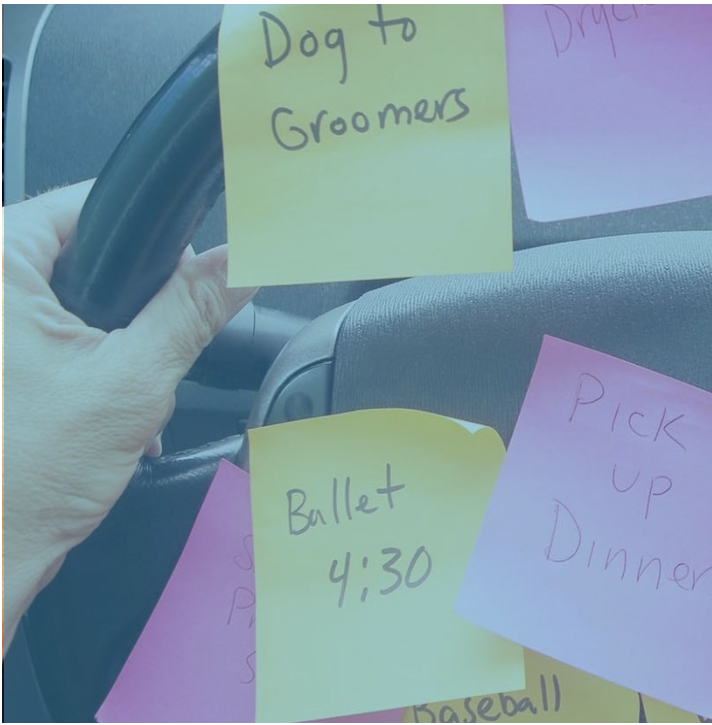 Dog to
Groomers
Ballet
4:30
Pick
up
Dinner
Baseball